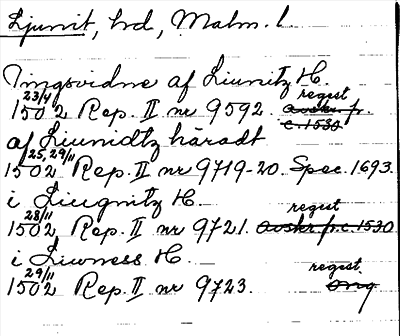 Ljunit, hd, Malm. l.
Tingsvidne af Liunitz H.
23/4 1502 Rep. II nr 9592. regest avskr. f. c. 1530
af Liunidtz häradt
25, 29/11 1502 Rep. II nr 9719-20. Spec. 1693.
i Liugnitz H.
28/11 1502 Rep. II nr 9721. regest avskr f. c. 1530
i Liwness H.
29/11 1502 Rep. II nr 9723. regest orig